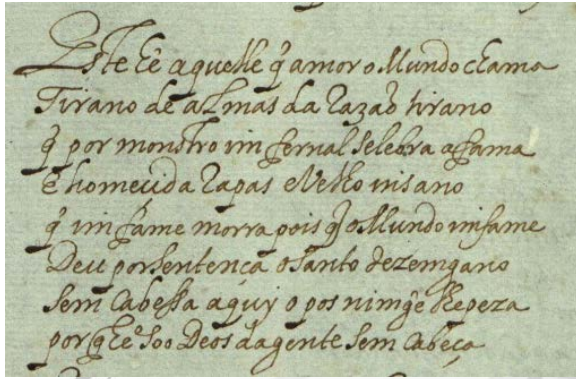 Este he aquelle q̃ amor o Mundo chama
Tirano de almas da Razaõ tirano
q̃ por monstro imfernal selebra a fama
E homecida Rapas e Velho insano
q̃ imfame morra pois q̃ o Mundo imfame
Deu por sentença o santo dezemgano
sem Cabessa aquy o pos nimgẽ lhe peza
porq̃ he soo Deos da gente sem Cabeça